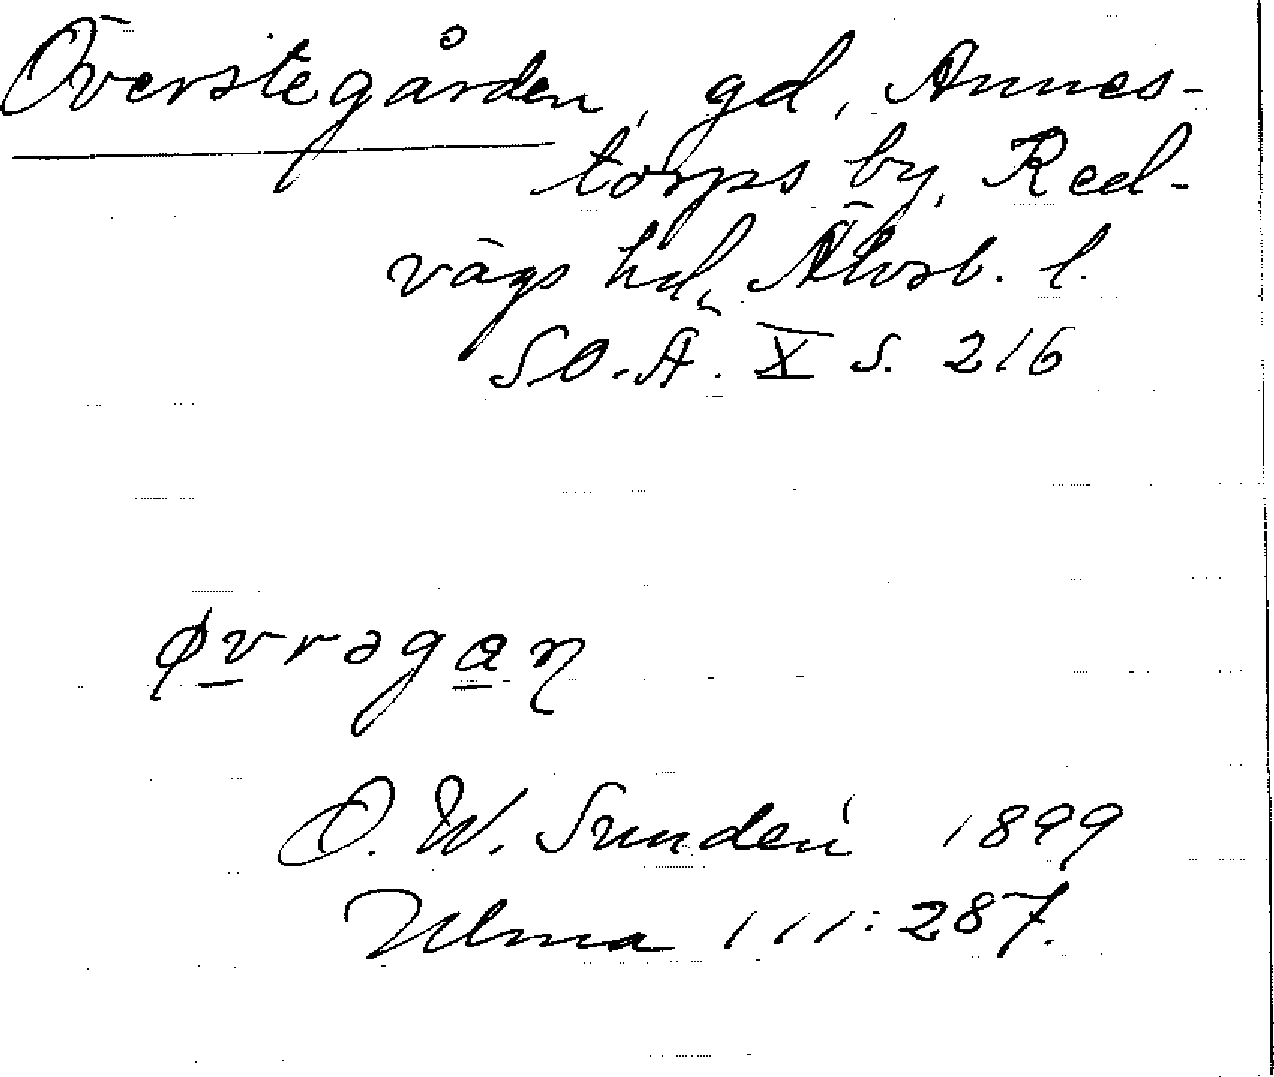 Överstegården, gd, Annes-
torps by, Red-
vägs hd, Älvsb. l.
SO.Ä. X s. 216
ø̱v̱rəga̱ŋ
O. W. Sundén 1899
Ulma 111:287.